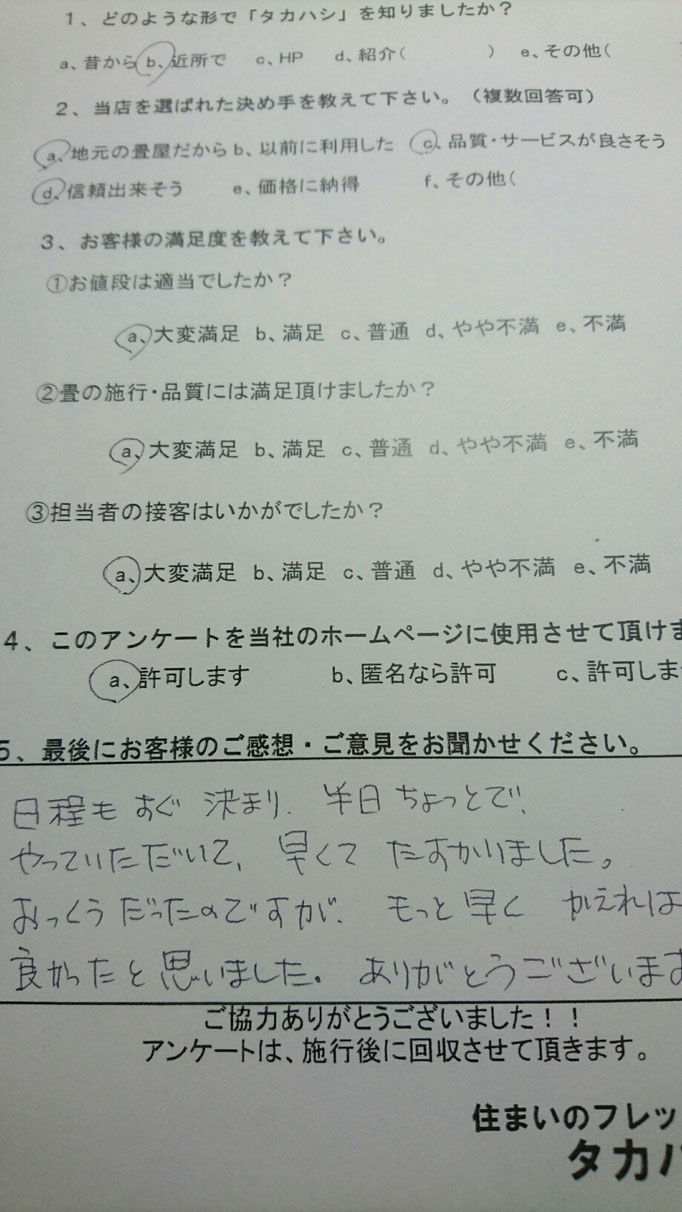 １、どのような形で「タカハシ」を知りましたか？
a、昔から b、近所で c、HP d、紹介（ ） e、その他（
２、当店を選ばれた決め手を教えて下さい。（複数回答可）
a、地元の畳屋だから b、以前に利用した c、品質・サービスが良さそう
d、信頼出来そう e、価格に納得 f、その他（
３、お客様の満足度を教えて下さい。
①お値段は適当でしたか？
a、大変満足 b、満足 c、普通 d、やや不満 e、不満
②畳の施行・品質には満足頂けましたか？
a、大変満足 b、満足 c、普通 d、やや不満 e、不満
③担当者の接客はいかがでしたか？
a、大変満足 b、満足 c、普通 d、やや不満 e、不満
４、このアンケートを当社のホームページに使用させて頂けま
a、許可します b、匿名なら許可 c、許可しま
５、最後にお客様のご感想・ご意見をお聞かせください。
日程も すぐ 決まり、半日ちょっとで、
やっていただいて、早くて たすかりました。
おっくうだったのですが、もっと早く かえれは
良かったと思いました。ありがとうございます
ご協力ありがとうございました！！
アンケートは、施行後に回収させて頂きます。
住まいのフレッ
タカハ